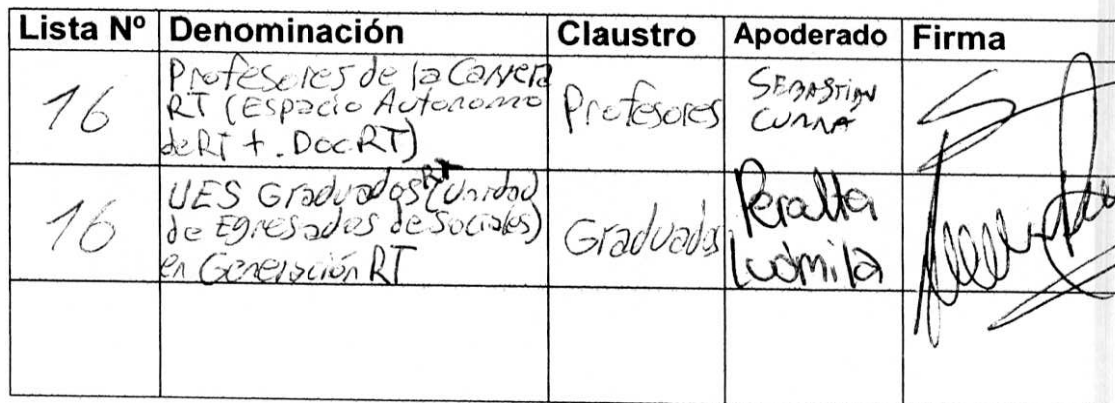 Lista Nº Denominación Claustro Apoderado Firma
16
Profesores de la Carrera
RT (Espacio Autonomo
de RT + . Doc RT)
Profesores
SEBASTIAN
16
UES Graduados RT (Unidad
de Egresados de Sociales)
en Generación RT
Graduados
Peralta
Ludmila